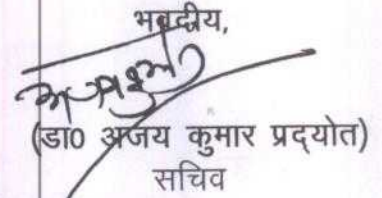 भवदीय,
(डा0 अजय कुमार प्रद्योत)
सचिव